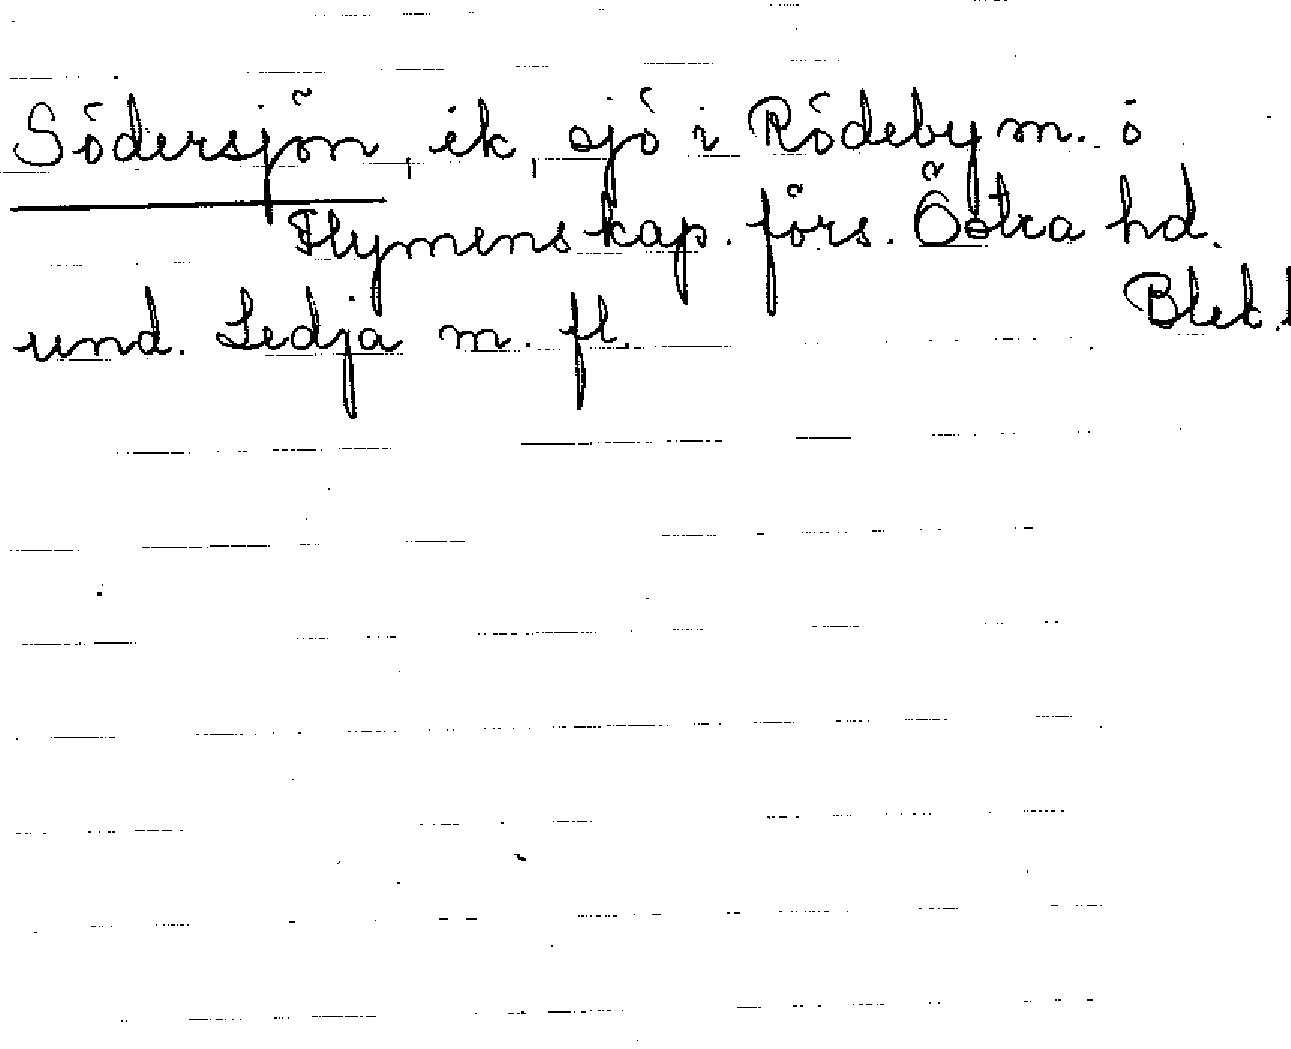 Södersjön, ik, sjö i Rödeby m. o
Flymens kap. förs. Östra hd.
Blek.
und. Ledja m. fl.